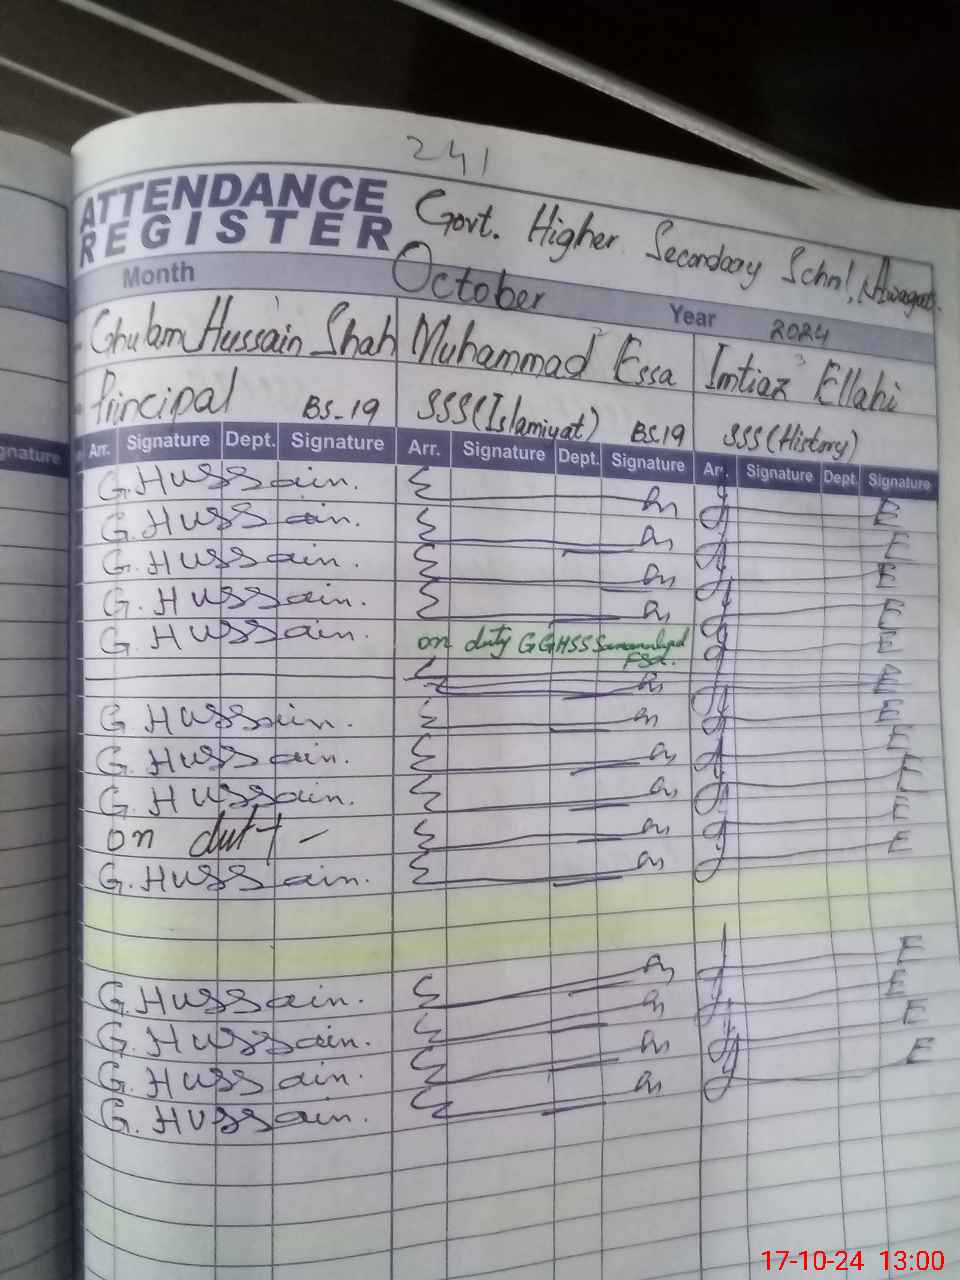 241
ATTENDANCE
REGISTER
Govt. Higher Secondary School,
Month October Year 2024
Ghulam Hussain Shah Muhammad Essa Imtiaz Ellahi
Principal BS-19 SSS(Islamiyat) BS.19 SSS(History)
gnature Arr. Signature Dept. Signature Arr. Signature Dept. Signature Arr. Signature Dept. Signature
G.Hussain. E
G.Hussain. E
G.Hussain. E
G.Hussain. E
G.Hussain. on duty GGHSS E
E
G.Hussain. E
G.Hussain. E
G.Hussain. E
on duty - E
G.Hussain. E
G.Hussain. E
G.Hussain. E
G.Hussain. E
G.Hussain. E
17-10-24 13:00